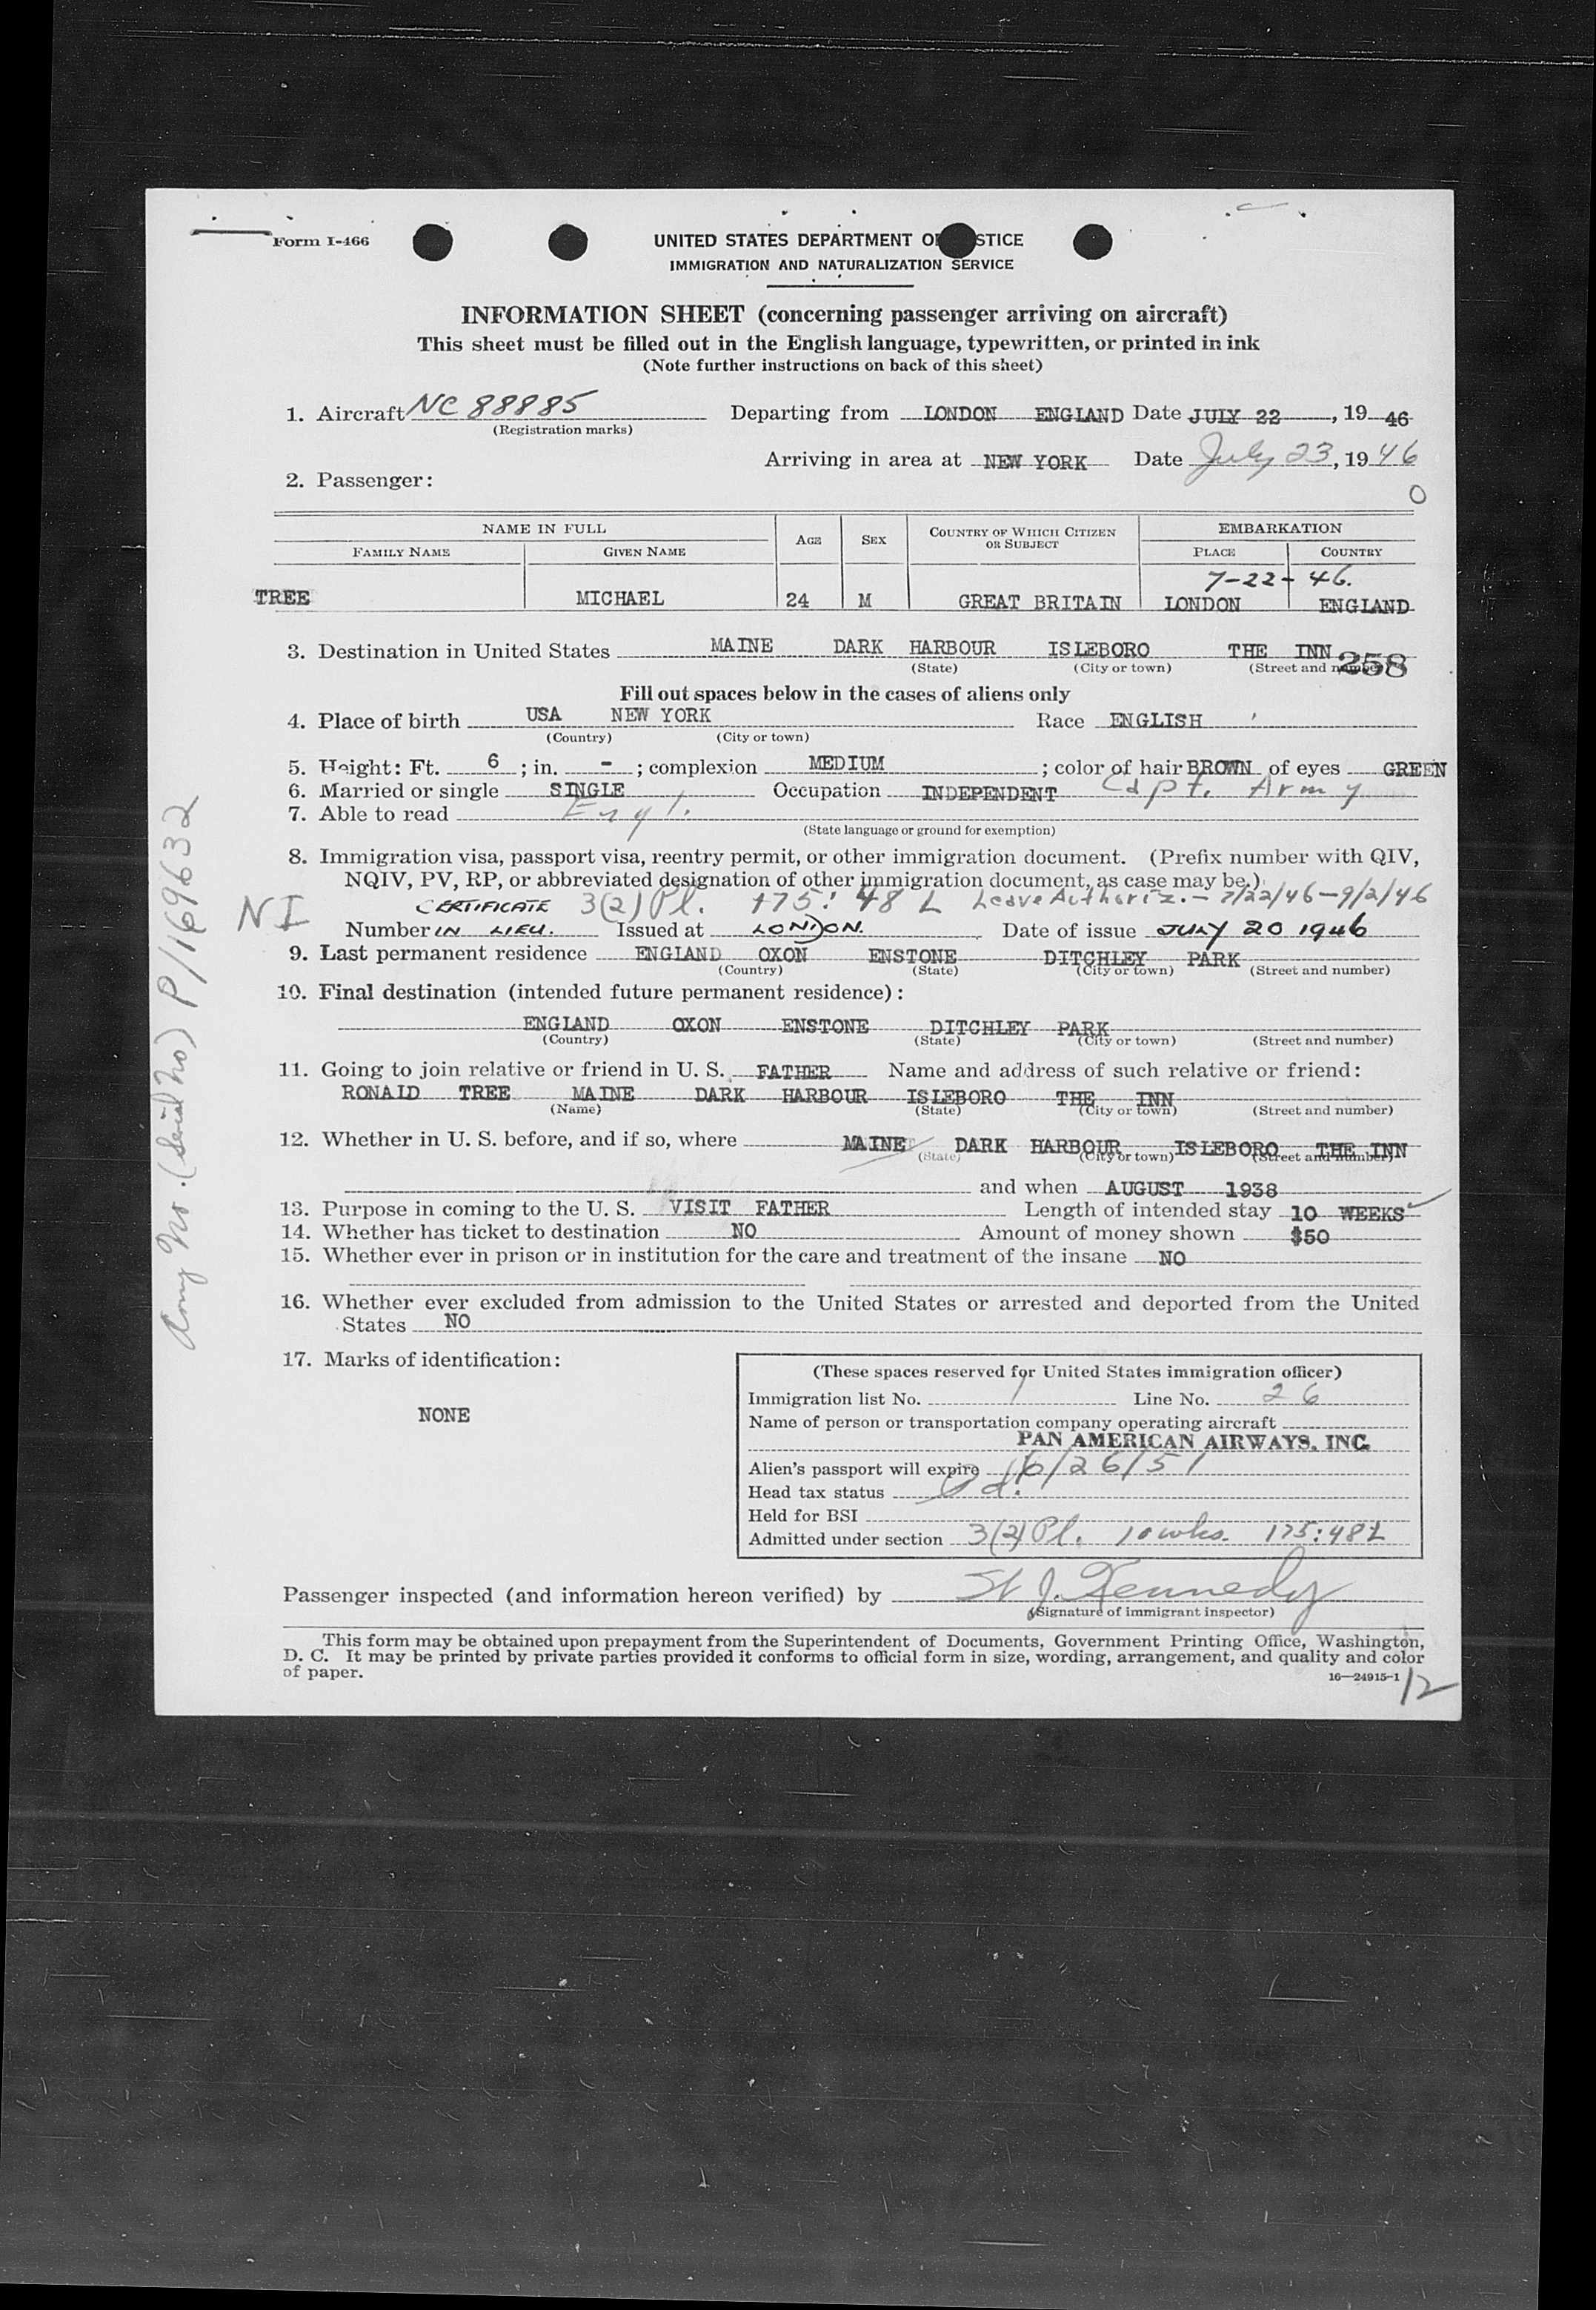 Form I-466
UNITED STATES DEPARTMENT OF JUSTICE
IMMIGRATION AND NATURALIZATION SERVICE
INFORMATION SHEET (concerning passenger arriving on aircraft)
This sheet must be filled out in the English language, typewritten, or printed in ink
(Note further instructions on back of this sheet)
1. Aircraft NC 88885 Departing from LONDON ENGLAND Date JULY 22, 19 46
(Registration marks)
Arriving in area at NEW YORK Date July 23, 19 46
2. Passenger:
0
NAME IN FULL AGE SEX COUNTRY OF WHICH CITIZEN OR SUBJECT EMBARKATION
FAMILY NAME GIVEN NAME PLACE COUNTRY
7-22-46.
TREE MICHAEL 24 M GREAT BRITAIN LONDON ENGLAND
3. Destination in United States MAINE DARK HARBOUR ISLEBORO THE INN 258
(State) (City or town) (Street and number)
Fill out spaces below in the cases of aliens only
4. Place of birth USA NEW YORK Race ENGLISH
(Country) (City or town)
5. Height: Ft. 6 ; in. - ; complexion MEDIUM ; color of hair BROWN of eyes GREEN
6. Married or single SINGLE Occupation INDEPENDENT Capt. Army
7. Able to read Engl.
(State language or ground for exemption)
8. Immigration visa, passport visa, reentry permit, or other immigration document. (Prefix number with QIV,
NQIV, PV, RP, or abbreviated designation of other immigration document, as case may be.)
NI CERTIFICATE 3(2) Pl. 175:48 L Leave Authoriz. - 7/22/46-9/2/46
Number IN LIEU. Issued at LONDON. Date of issue JULY 20 1946
9. Last permanent residence ENGLAND OXON ENSTONE DITCHLEY PARK
(Country) (State) (City or town) (Street and number)
10. Final destination (intended future permanent residence):
ENGLAND OXON ENSTONE DITCHLEY PARK
(Country) (State) (City or town) (Street and number)
11. Going to join relative or friend in U. S. FATHER Name and address of such relative or friend:
RONALD TREE MAINE DARK HARBOUR ISLEBORO THE INN
(Name) (State) (City or town) (Street and number)
12. Whether in U. S. before, and if so, where MAINE DARK HARBOUR ISLEBORO THE INN
(State) (City or town) (Street and number)
and when AUGUST 1938
13. Purpose in coming to the U. S. VISIT FATHER Length of intended stay 10 WEEKS
14. Whether has ticket to destination NO Amount of money shown $50
15. Whether ever in prison or in institution for the care and treatment of the insane NO
16. Whether ever excluded from admission to the United States or arrested and deported from the United
States NO
17. Marks of identification:
NONE
(These spaces reserved for United States immigration officer)
Immigration list No. 1 Line No. 26
Name of person or transportation company operating aircraft
PAN AMERICAN AIRWAYS, INC.
Alien's passport will expire 6/26/51
Head tax status Pd.
Held for BSI
Admitted under section 3(2) Pl. 10 wks. 175:48L
Passenger inspected (and information hereon verified) by St J. Kennedy
(Signature of immigrant inspector)
This form may be obtained upon prepayment from the Superintendent of Documents, Government Printing Office, Washington,
D. C. It may be printed by private parties provided it conforms to official form in size, wording, arrangement, and quality and color
of paper.
16—24915-1
12
Army No. (Serial No) P/169632